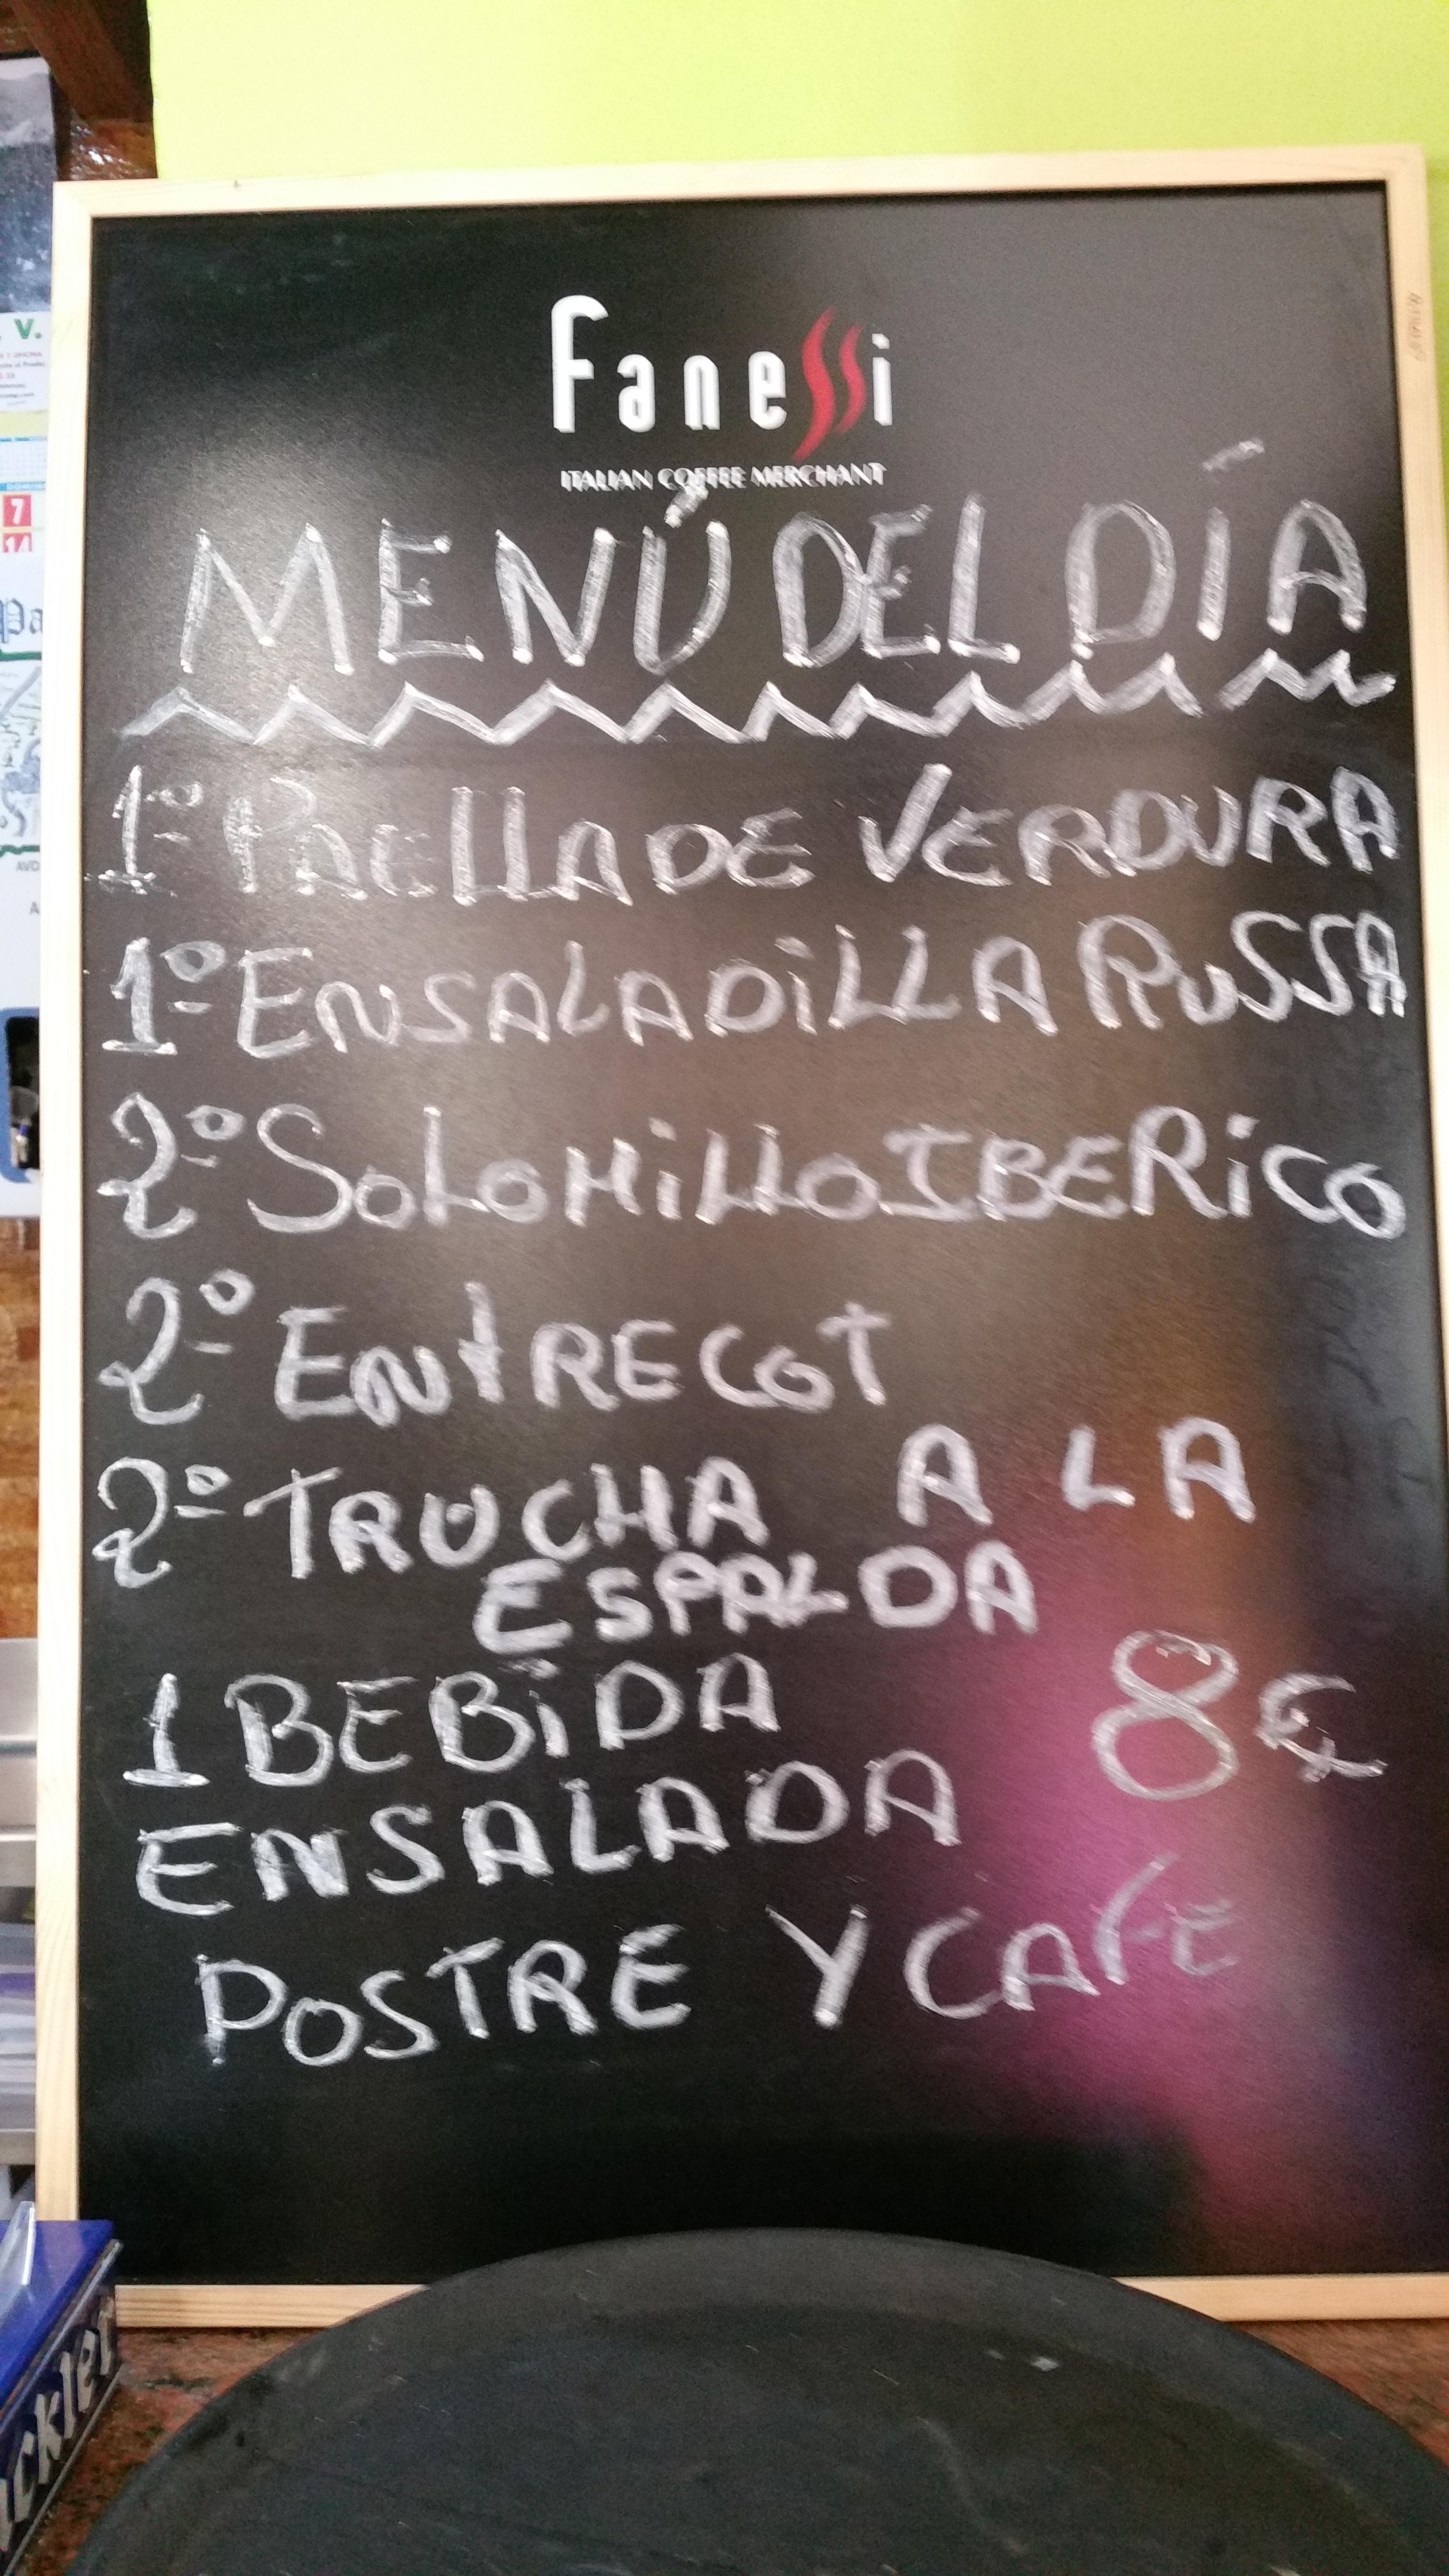 Fanessi
ITALIAN COFFEE MERCHANT
MENÚ DEL DÍA
1º PAELLA DE VERDURA
1º ENSALADILLA RUSSA
2º SOLOMILLO IBERICO
2º ENTRECOT
2º TRUCHA A LA
ESPALDA
1 BEBIDA
8€
ENSALADA
POSTRE Y CAFE
V.
7
14
Pa
AVD